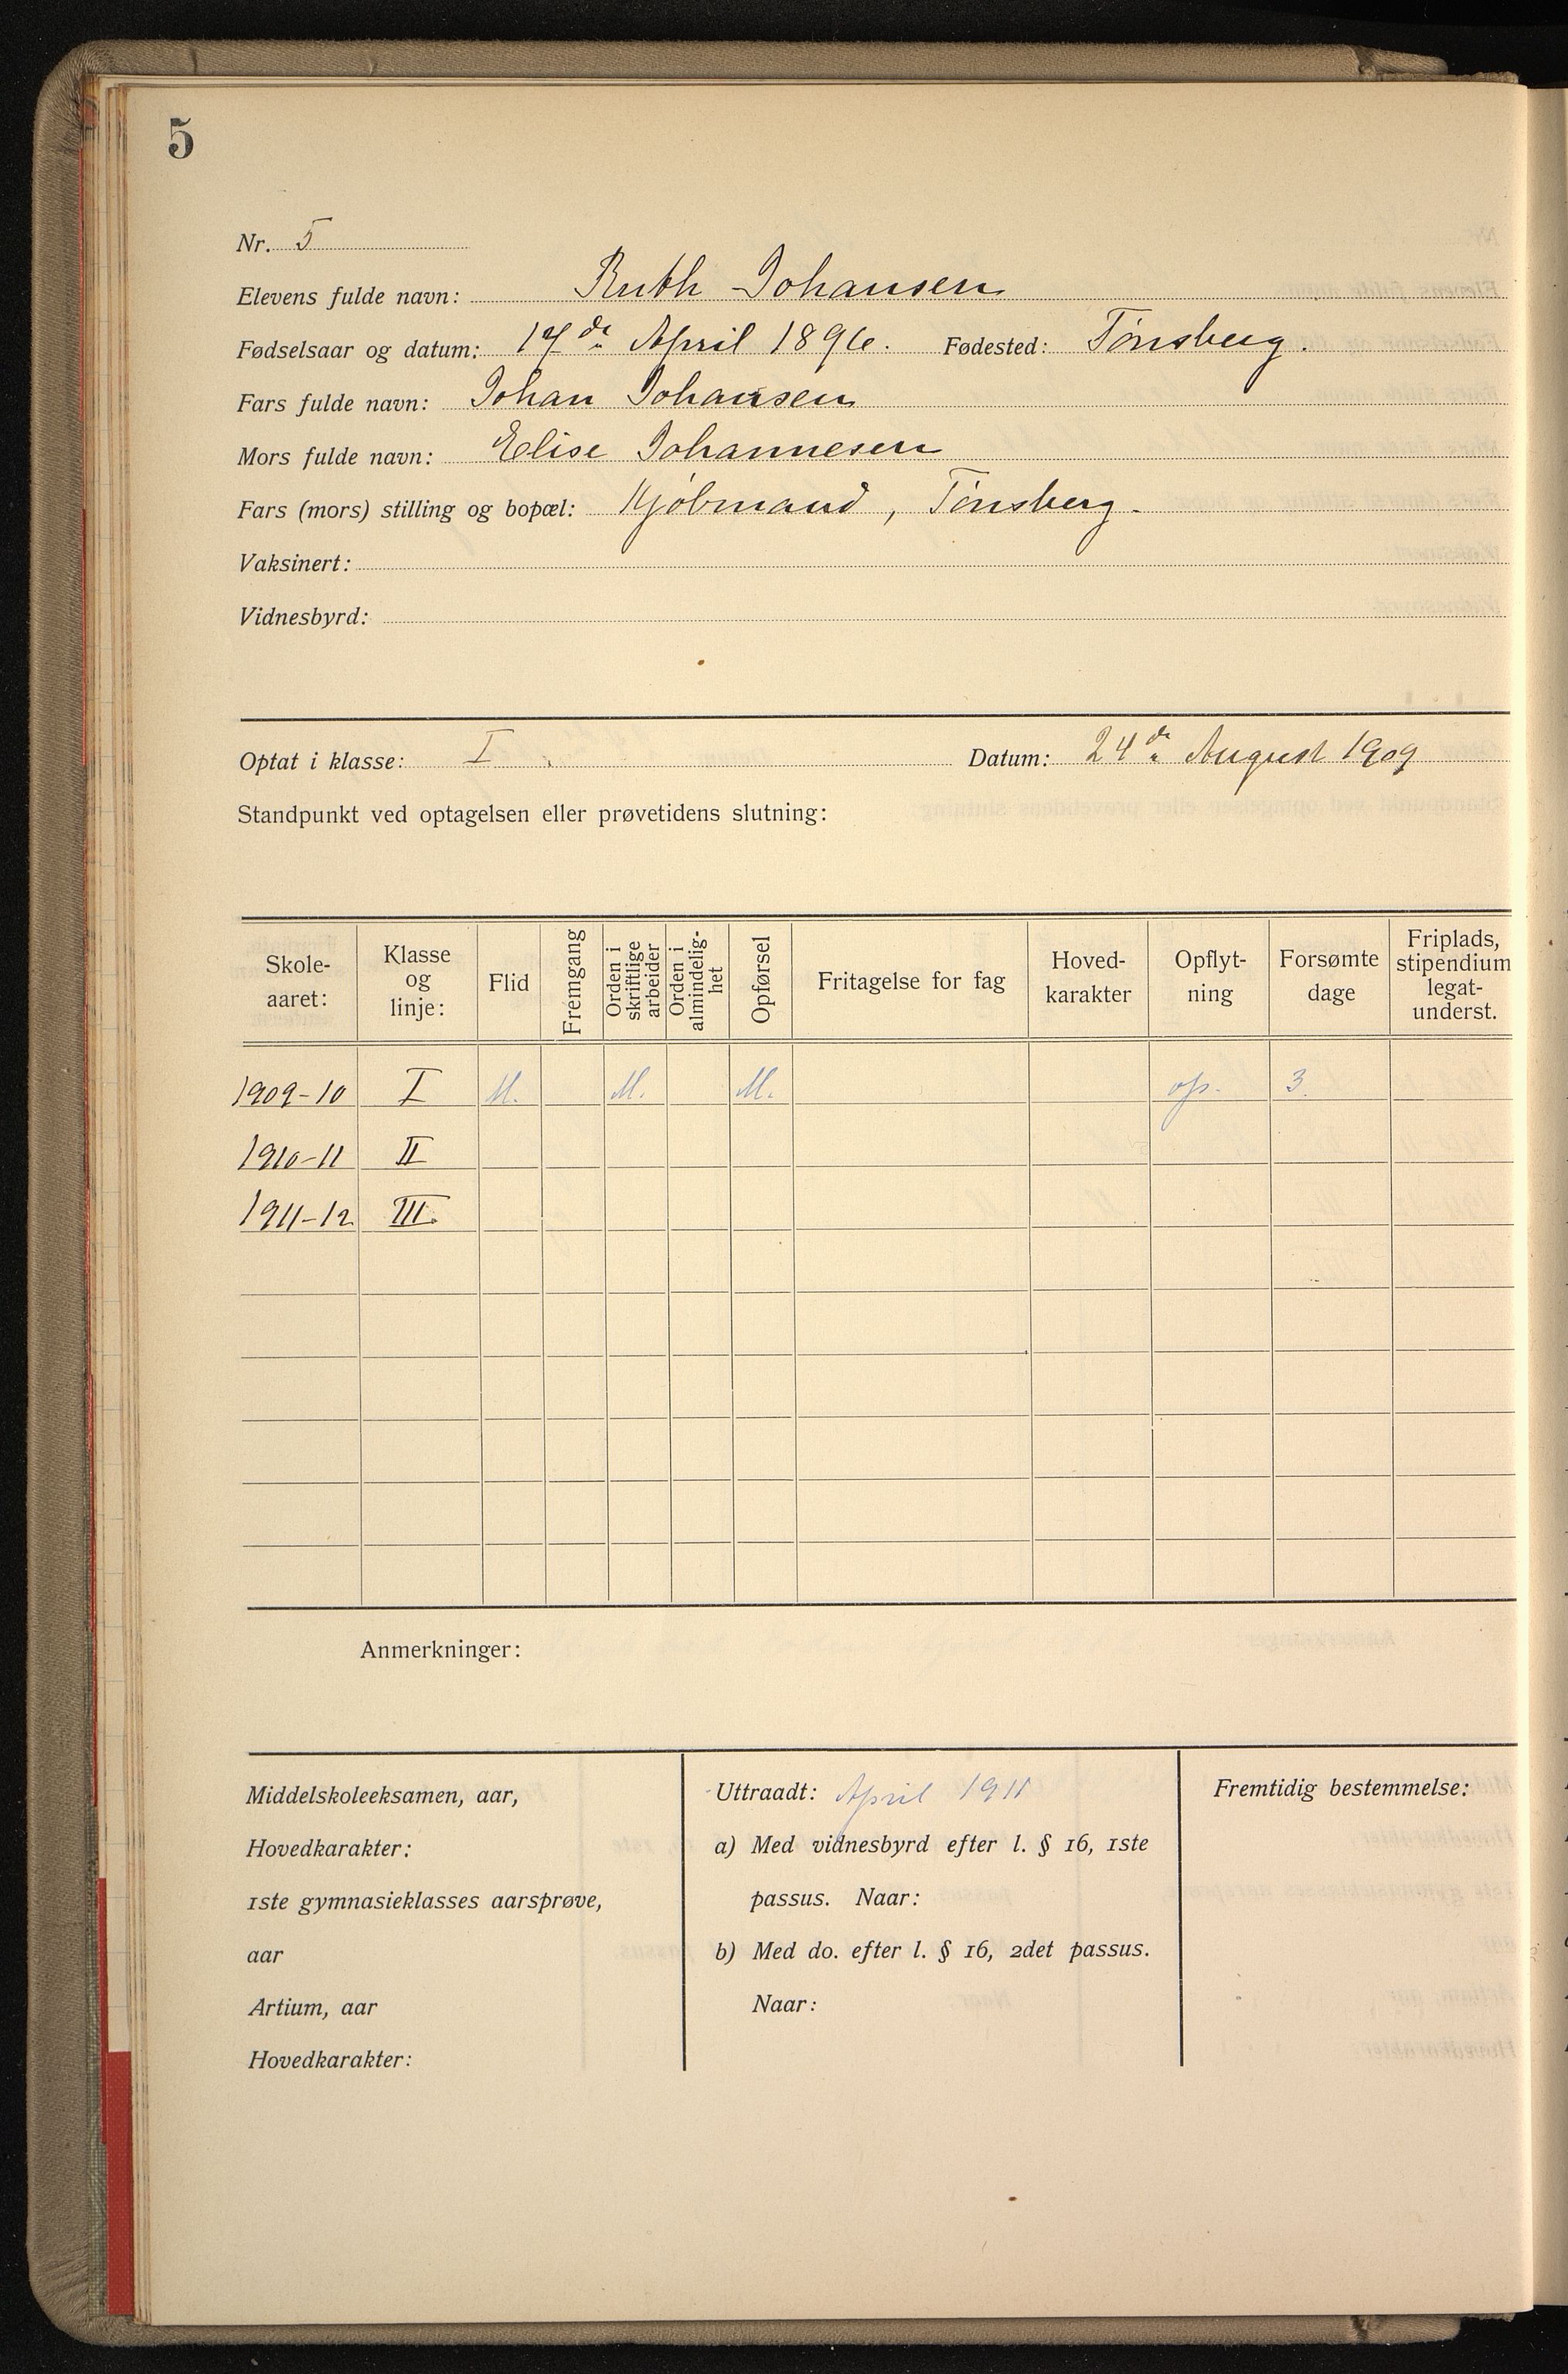 5
Nr. 5
Elevens fulde navn: Ruth Johansen
Fødselsaar og datum: 17de April 1896. Fødested: Tønsberg.
Fars fulde navn: Johan Johansen
Mors fulde navn: Elise Johannesen
Fars (mors) stilling og bopæl: Kjøbmand, Tønsberg.
Vaksinert:
Vidnesbyrd:
Optat i klasse: I. Datum: 24de August 1909
Standpunkt ved optagelsen eller prøvetidens slutning:
Skole-aaret: Klasse og linje: Flid Fremgang Orden i skriftlige arbeider Orden i almindelig-het Opførsel Fritagelse for fag Hoved-karakter Opflyt-ning Forsømte dage Friplads, stipendium legat-underst.
1909-10 I M. M. M. op. 3.
1910-11 II
1911-12 III.
Anmerkninger:
Middelskoleeksamen, aar,
Hovedkarakter:
1ste gymnasieklasses aarsprøve,
aar
Artium, aar
Hovedkarakter:
Uttraadt: April 1911
a) Med vidnesbyrd efter l. § 16, 1ste
passus. Naar:
b) Med do. efter l. § 16, 2det passus.
Naar:
Fremtidig bestemmelse: